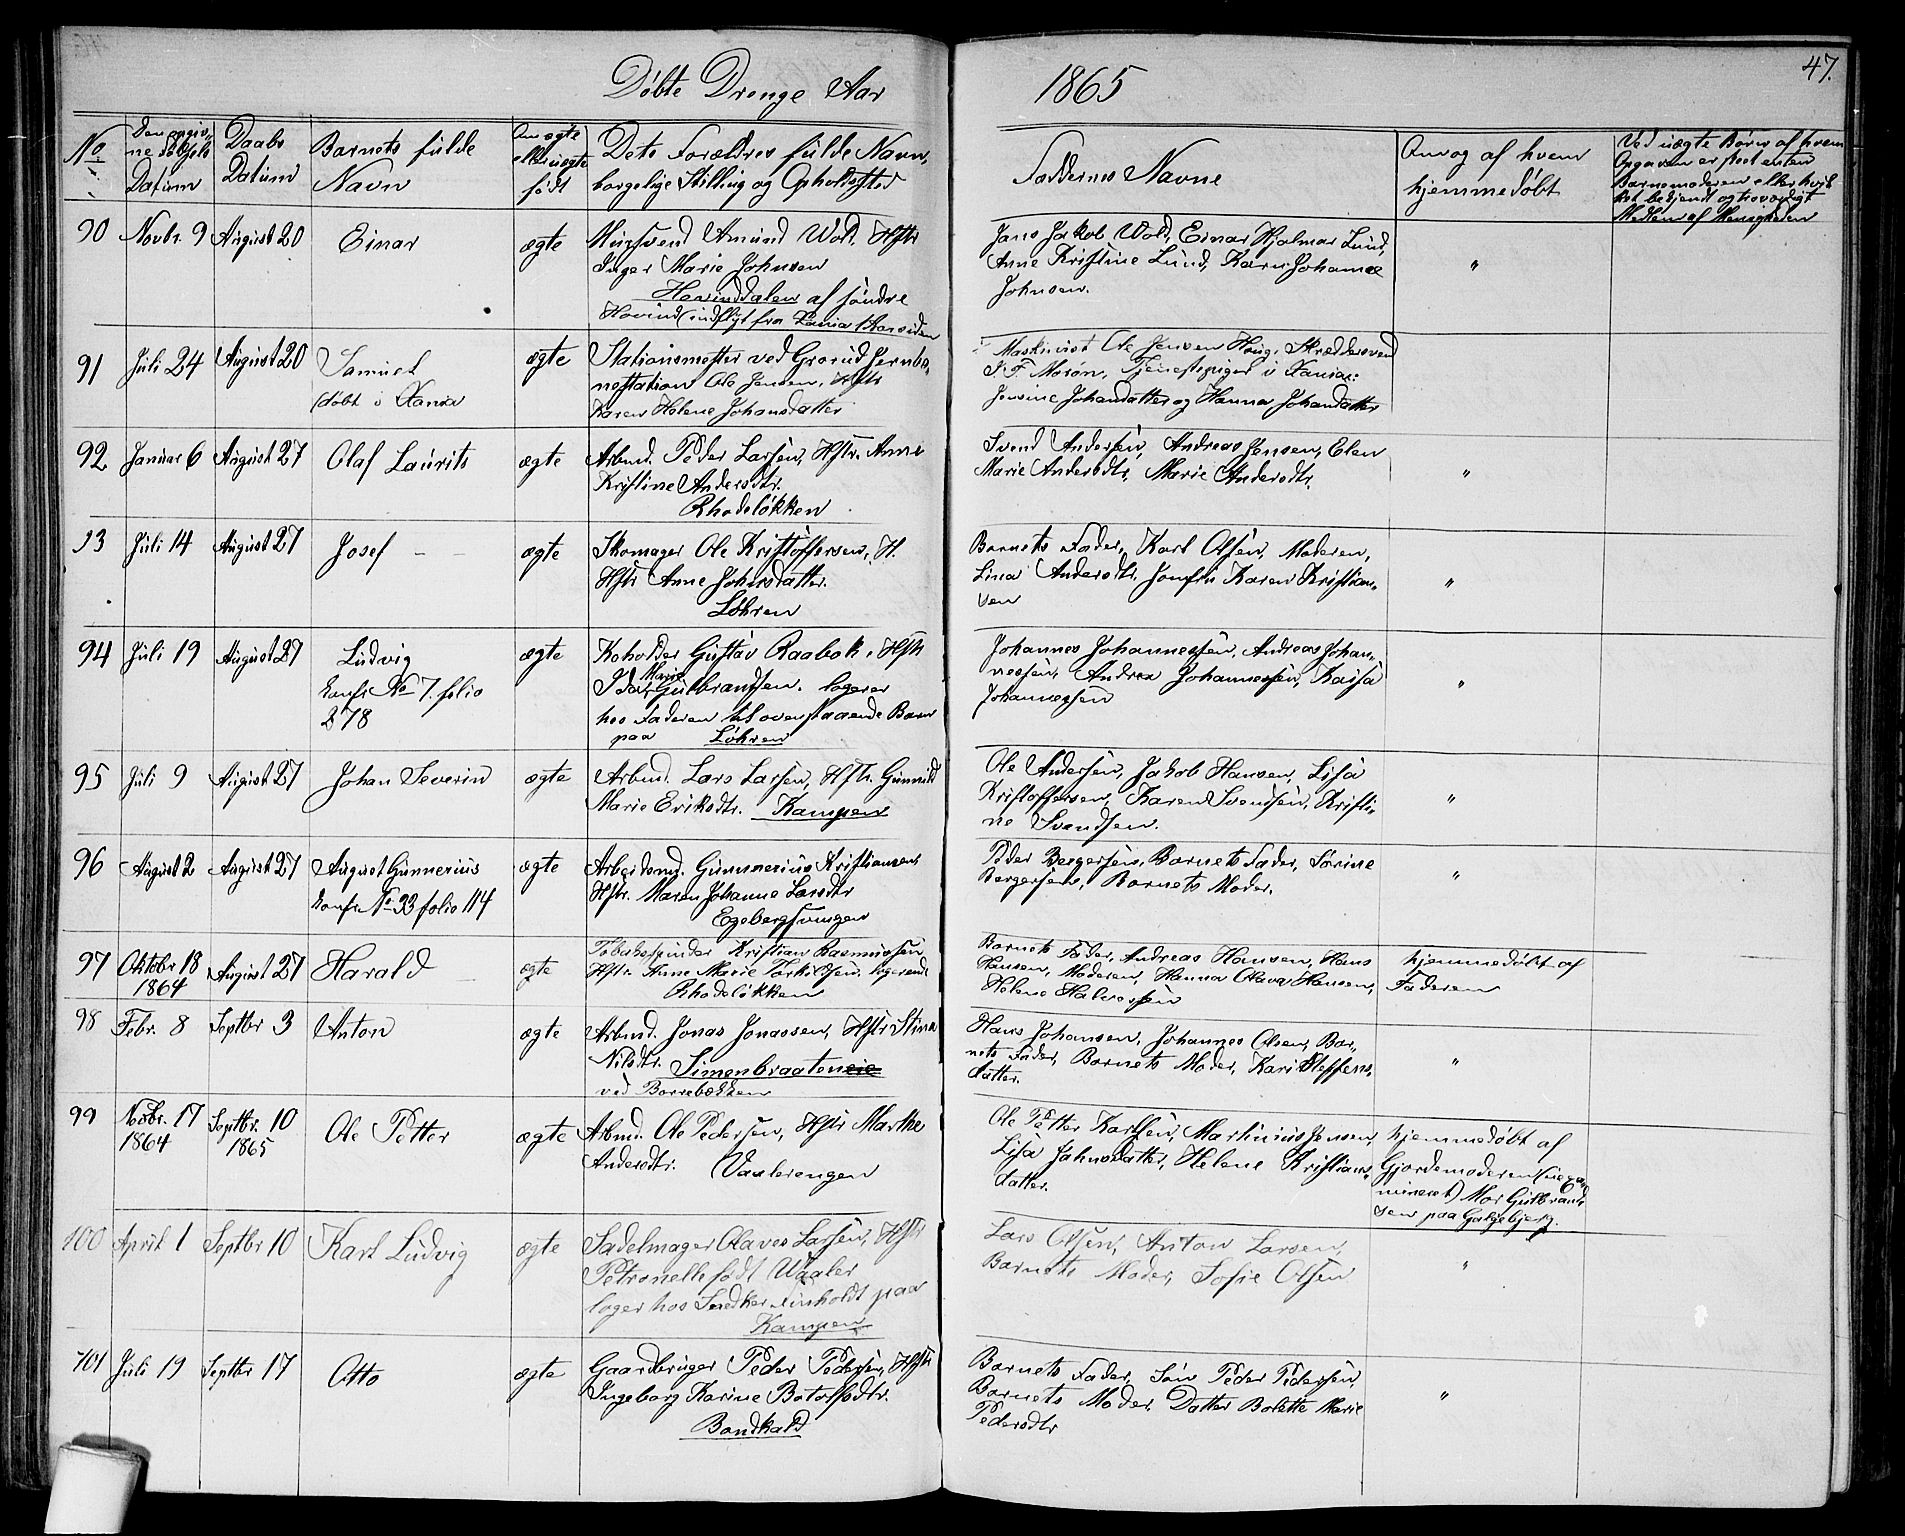 Døbte Drenge Aar 1865
47.
No
Den angiv-
ne Fødsels
Datum
Daabs
Datum
Barnets fulde
Navn
Om ægte
eller uægte
født
Dets Forældres fulde Navn,
borgelige Stilling og Opholdssted
Faddernes Navne
Om og af hvem
hjemmedøbt
Ved uægte Børn af hvem
Opgaven er skeet enten
Barnemoderen eller hvil-
ket bekjendt og troværdigt
Medlem af Menigheden
90 Novbr. 9 August 20 Einar ægte
Muursvend Amund Wold. Hstr
Inger Marie Johnsen
Hovinddalen af søndre
Hovind (indflyt fra Xania
Jans Jakob Wold, Einar Hjalmar Lund,
Anne Kristine Lund, Karen Johanne
Johnsen.
"
91 Juli 24 August 20 Samuel
døbt i Xania
ægte
Stationsmester ved Grorud Jernba-
nestation Ole Jensen, Hstr
Karen Helene Johansdatter
Maskinist Ole Jensen Haug, Skræddersvend
Tjenestepiger i Xania:
Jensine Johansdatter og Hanna Johansdatter
92 Januar 6 August 27 Olaf Laurits ægte
Arbmd. Peder Larsen, Hstr. Anne
Kristine Andersdtr.
Rhodeløkken
Svend Andersen, Andreas Jensen, Elen
Marie Andersdtr, Marie Andersdtr.
"
93 Juli 14 August 27 Josef ægte
Skomager Ole Kristoffersen, H.
Hstr Anne Johnsdatter.
Løhren
Barnets Fader, Karl Olsen, Moderen,
Lina Andersdtr. Jomfru Karen Kristian-
sen
"
94 Juli 19 August 27 Ludvig
Konfr. No 7. folio
278
ægte
Koholder Gustav Raabok, Hstr
Marie
Ida Gulbrandsen. logerer
hos Faderen til ovenstaaende Barn
paa Løhren
Johannes Johannessen, Andreas Johan-
nessen, Andrea Johannessen, Kaisa
Johannessen
"
95 Juli 9 August 27 Johan Severin ægte
Arbmd. Lars Larsen, Hstr. Gunnild
Marie Eriksdtr. Kampen
Ole Andersen, Jakob Hansen, Lisa
Kristoffersen, Karen Svendsen, Kristi-
ne Svendsen.
"
96 August 2 August 27 August Gunnerius
Konfr. No 33 folio 114
ægte
Arbeidsmd. Gunnerius Kristiansen,
Hstr. Maren Johanne Larsdtr
Egebergsvingen
Peder Bergersen, Barnets Fader, Sørine
Bergersen, Barnets Moder.
"
97 Oktober 18
1864
August 27 Harald ægte
Tobakspinder Kristian Rasmussen
Hstr. Anne Marie Torkelsen, logerende
Rhodeløkken
Barnets Fader, Andreas Hansen, Hans
Hansen, Moderen, Hanna Olava Hansen,
Helene Halvorsen
hjemmedøbt af
Faderen
98 Febr. 8 Septbr 3 Anton ægte
Arbmd. Jonas Jonassen, Hstr Stina
Nilsdtr. Simenbraateneie
ved Borrebækken
Hans Johansen, Johannes Olsen, Bar-
nets Fader, Barnets Moder, Kari Steffens-
datter.
"
99 Novbr. 17
1864
Septbr. 10
1865
Ole Petter ægte
Arbmd. Ole Pedersen, Hstr Marthe
Andersdtr. Vaalerengen
Ole Petter Karlsen, Martinius Jensen,
Lisa Jahnsdatter, Helene Kristians-
datter.
hjemmedøbt af
Gjordemoderen (uexa-
mineret) Mor Gulbrand-
sen paa Galgebjerg.
100 April 1 Septbr 10 Karl Ludvig ægte
Sadelmager Olaves Larsen, Hstr
Petronelle født Waaler
loger hos Snedker Linholdt paa
Kampen
Lars Olsen, Anton Larsen,
Barnets Moder, Sofie Olsen
"
101 Juli 19 Septbr 17 Otto ægte
Gaardbruger Peder Pedersen, Hstr
Ingeborg Karine Botolfsdtr.
Bondkald
Barnets Fader, Søn Peder Pedersen,
Barnets Moder, Datter Bolette Marie
Pedersdtr
"